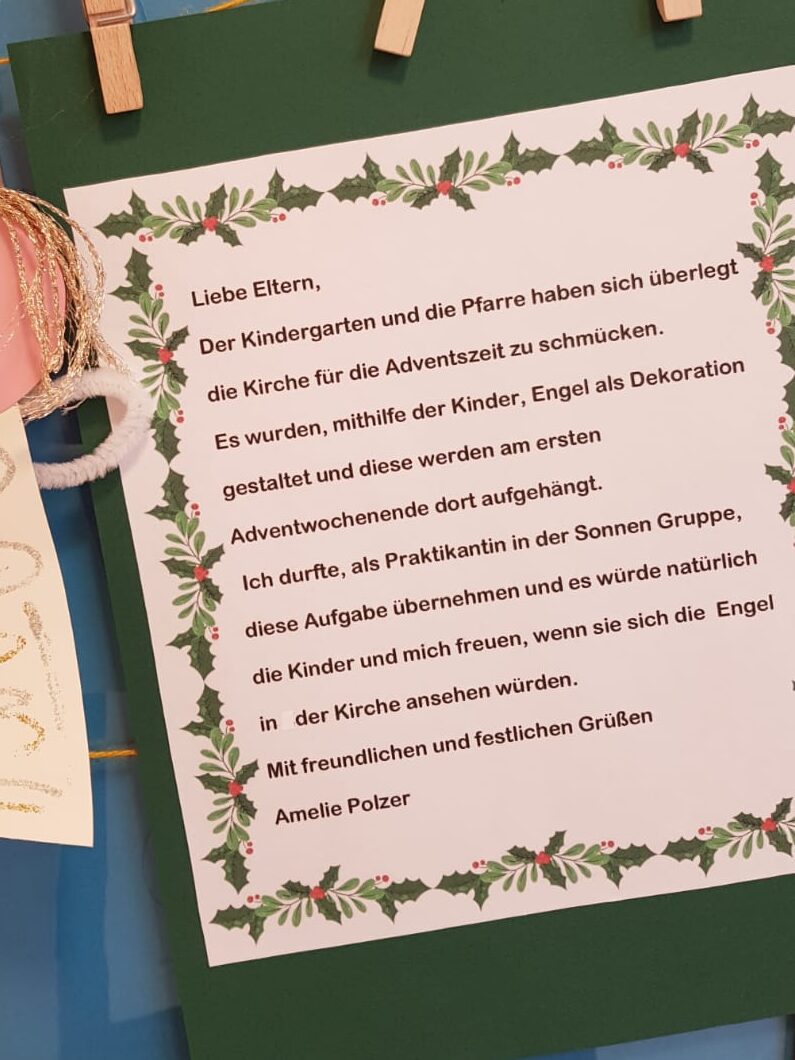 Liebe Eltern,
Der Kindergarten und die Pfarre haben sich überlegt
die Kirche für die Adventszeit zu schmücken.
Es wurden, mithilfe der Kinder, Engel als Dekoration
gestaltet und diese werden am ersten
Adventwochenende dort aufgehängt.
Ich durfte, als Praktikantin in der Sonnen Gruppe,
diese Aufgabe übernehmen und es würde natürlich
die Kinder und mich freuen, wenn sie sich die Engel
in der Kirche ansehen würden.
Mit freundlichen und festlichen Grüßen
Amelie Polzer